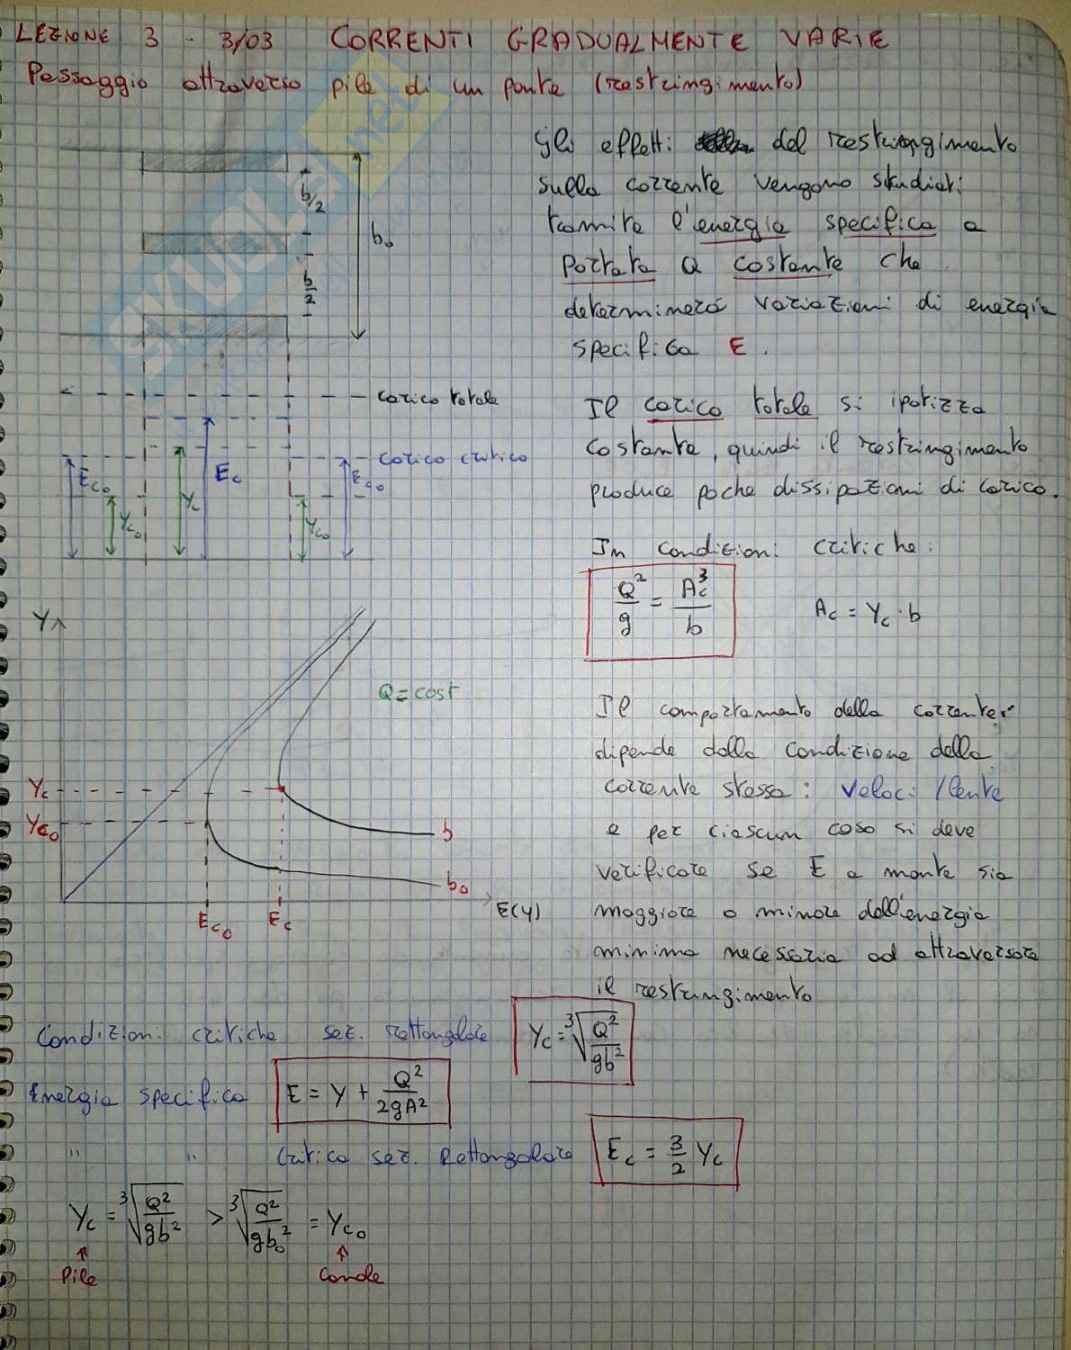 LEZIONE 3 - 3/03 CORRENTI GRADUALMENTE VARIE
Passaggio attraverso pile di un ponte (restringimento)
SKUOLA.net
b/2
b₀
b/2
Gli effetti del restringimento
sulla corrente vengono studiati
tramite l'energia specifica a
Portata Q costante che
determinerà variazioni di energia
specifica E.
carico totale
carico critico
E_c₀
Y_c₀
Y_c
E_c
Y_c₀
E_c₀
Il carico totale si ipotizza
costante, quindi il restringimento
produce poche dissipazioni di carico.
In condizioni critiche:
Q²/g = A_c³/b
A_c = Y_c · b
Y
Q = cost
Y_c
Y_c₀
b
b₀
E_c₀
E_c
E(Y)
Il comportamento della corrente
dipende dalla condizione della
corrente stessa: veloci / lente
e per ciascun caso si deve
verificare se E a monte sia
maggiore o minore dell'energia
minima necessaria ad attraversare
il restringimento
Condizioni critiche sez. rettangolare Y_c = ∛(Q²/gb²)
Energia specifica E = Y + Q²/2gA²
" " Critica sez. Rettangolare E_c = 3/2 Y_c
Y_c = ∛(Q²/gb²) > ∛(Q²/gb₀²) = Y_c₀
↑ ↑
Pile Canale